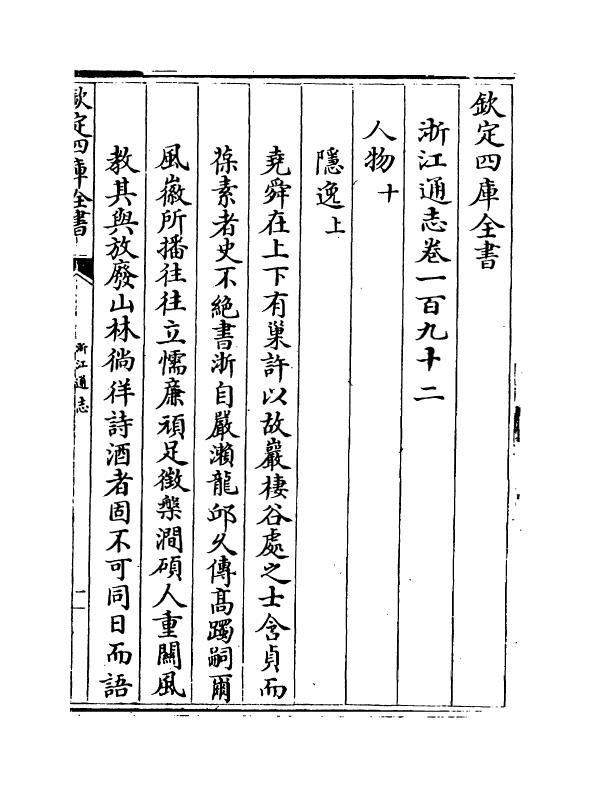 欽定四庫全書
浙江通志卷一百九十二
人物十
隱逸上
堯舜在上下有巢許以故巖棲谷處之士含貞而
葆素者史不絶書浙自嚴瀨龍邱久傳髙躅嗣爾
風徽所播往往立懦亷頑足徴槃澗碩人重闗風
教其與放廢山林徜徉詩酒者固不可同日而語
欽定四庫全書
浙江通志
一